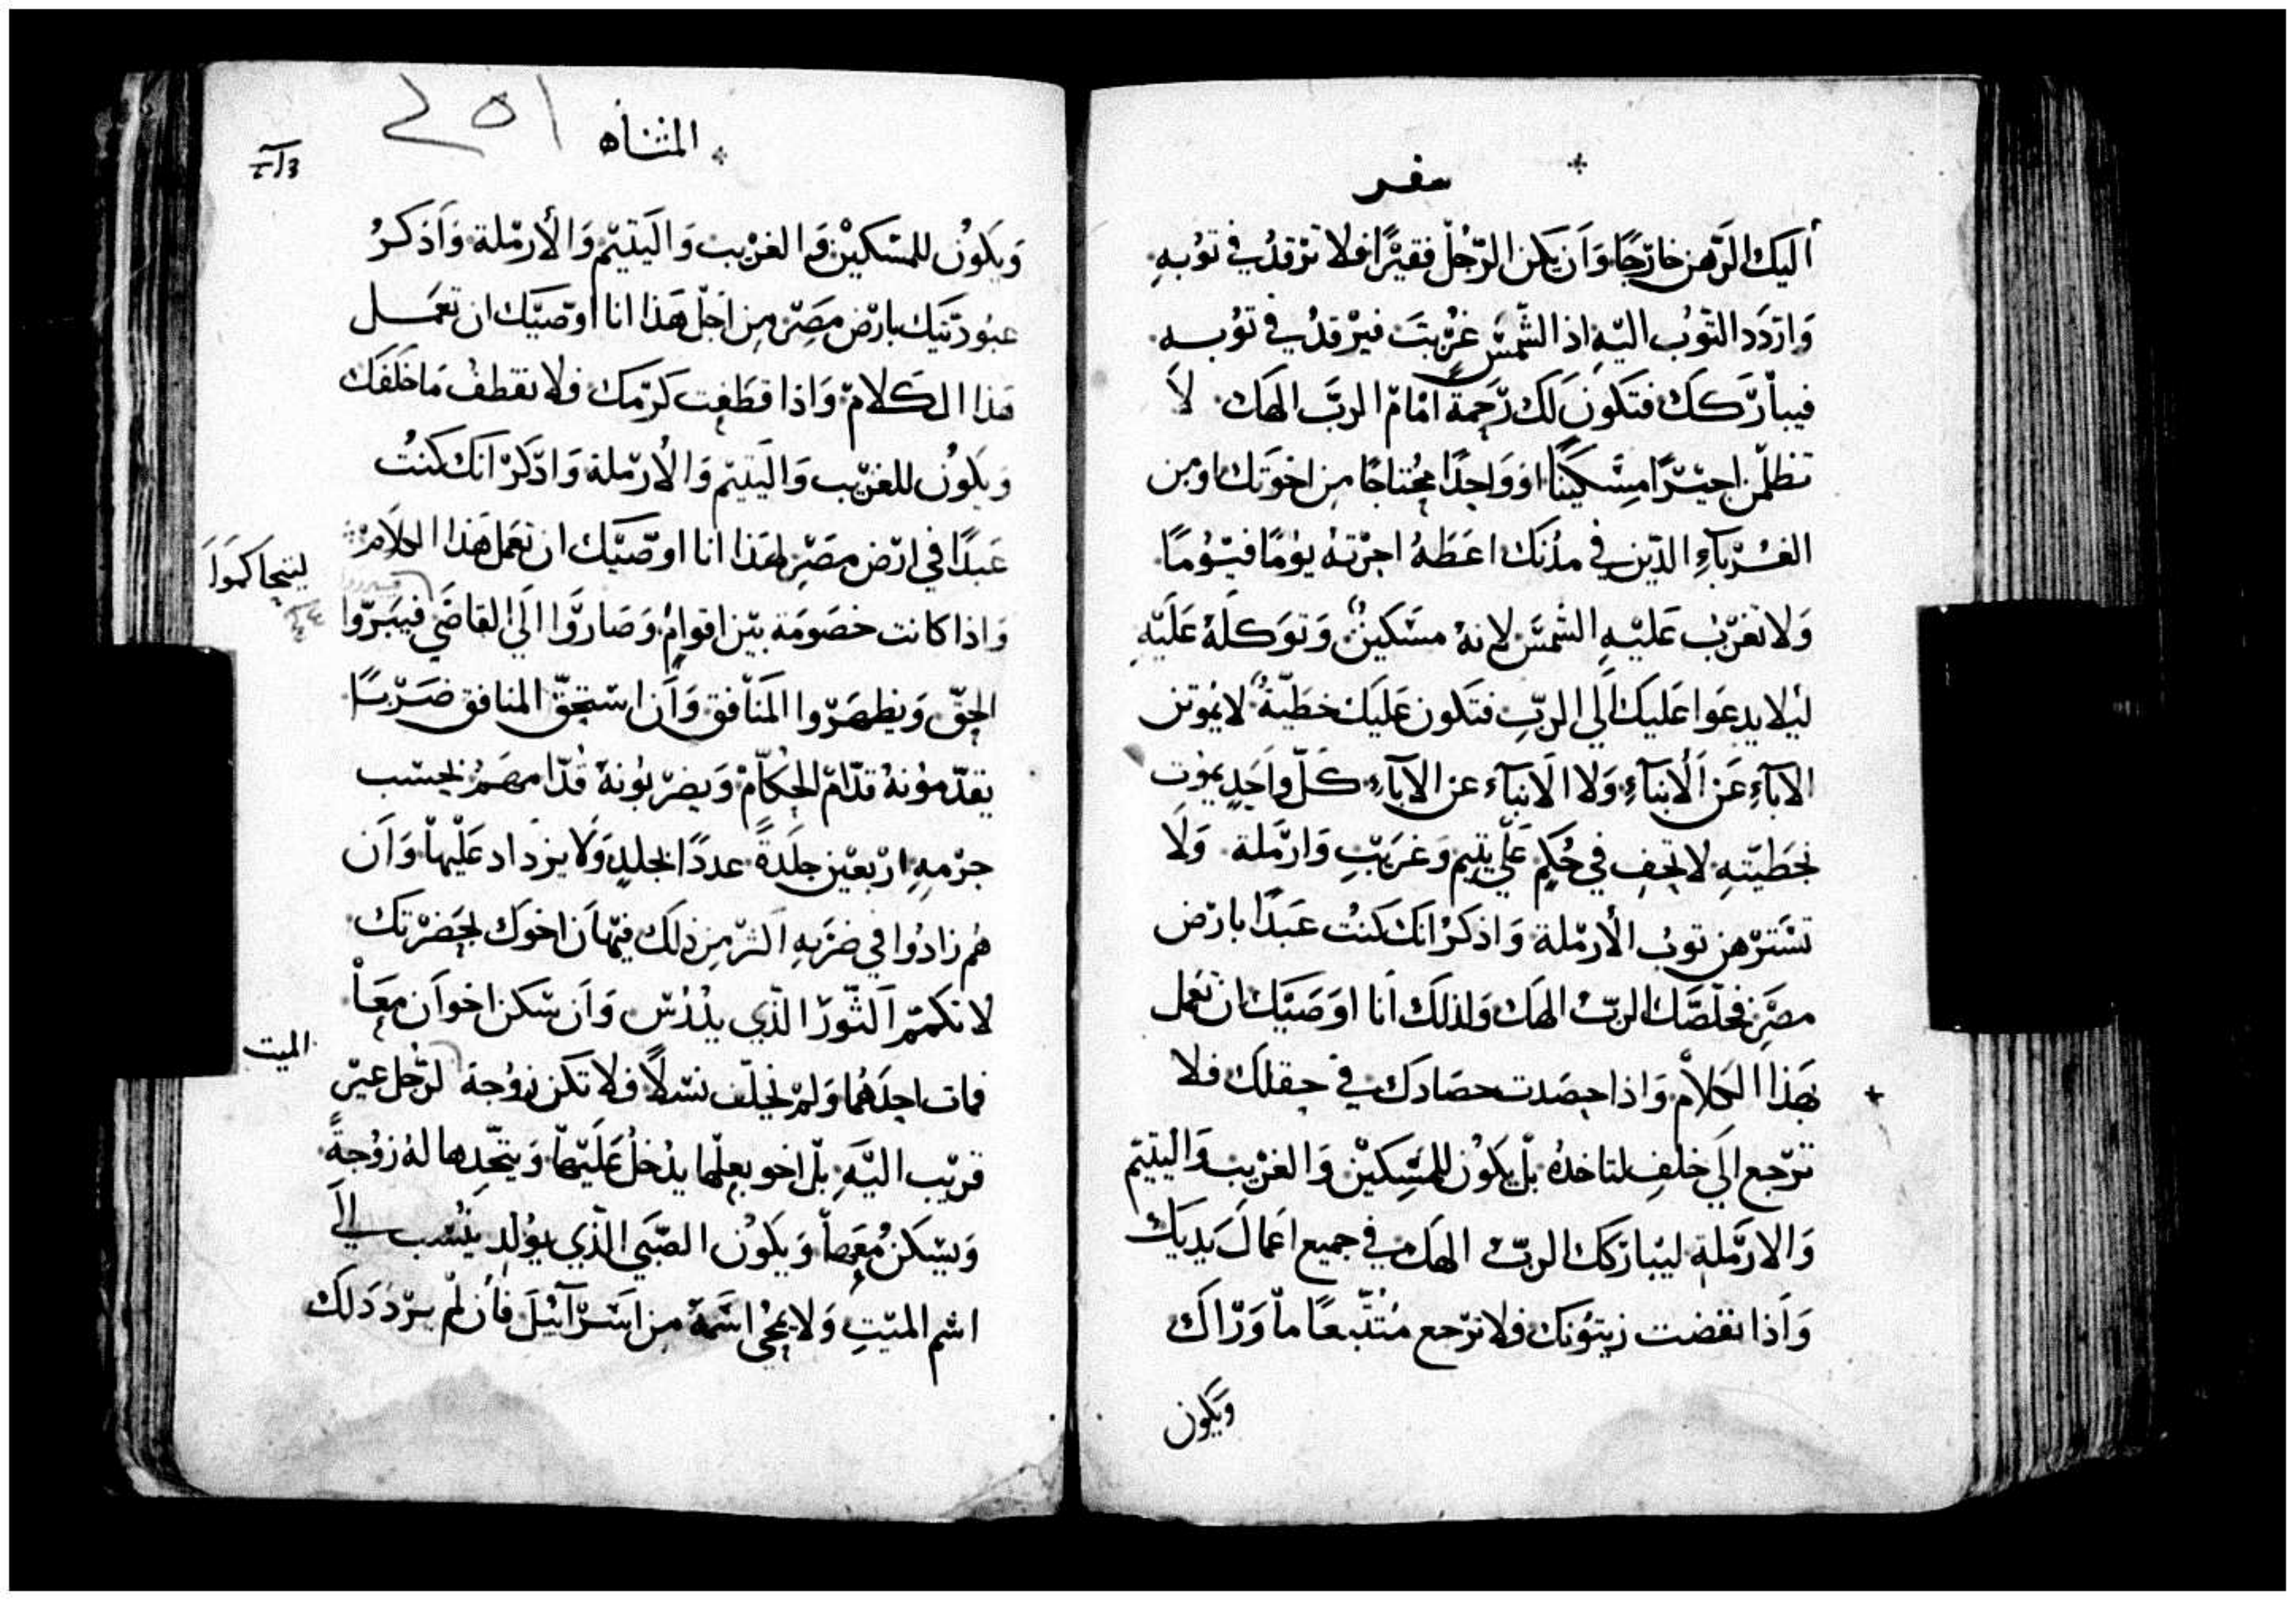 سفر
اليك الرهن خارجًا وان يكن الرجل فقيرًا فلا ترقد في توبه
واردد التوب اليه اذ الشمس غربت فيرقد في توبه
فيباركك فتكون لك رحمة امام الرب الهك لا
تظلمن اجيرًا مسكينًا او واحدًا محتاجًا من اخوتك او من
الغرباء الدين في مدنك اعطه اجرته يومًا فيومًا
ولا تغرب عليه الشمس لانه مسكين وتوكله عليه
ليلا يدعوا عليك الي الرب فتكون عليك خطية لا يموتن
الاباء عن الابناء ولا الابناء عن الاباء كل واحد يموت
بخطيته لا تحف في حكم علي يتيم وغريب وارملة ولا
تسترهن توب الارملة واذكر انك كنت عبدًا بارض
مصر فخلصك الرب الهك ولذلك انا اوصيك ان تعمل
هذا الكلام واذا حصدت حصادك في حقلك فلا
ترجع الي خلف لتاخده بل يكون للمسكين والغريب واليتيم
والارملة ليباركك الرب الهك في جميع اعمال يديك
واذا نفضت زيتونك فلا ترجع متتبعًا ما وراك
ويكون
المثناه
٢٥١
ويكون للمسكين والغريب واليتيم والارملة واذكر
عبودتيك بارض مصر من اجل هذا انا اوصيك ان تعمل
هذا الكلام واذا قطفت كرمك فلا تقطف ما خلفك
ويكون للغريب واليتيم والارملة واذكر انك كنت
عبدًا في ارض مصر لهذا انا اوصيك ان تعمل هذا الكلام
ليتحاكموا
واذا كانت خصومة بين اقوام وصاروا الي القاضي فيبروا
الحق ويظهروا المنافق وان استحق المنافق ضربًا
يقدمونه قدام الحكام ويضربونه قدامهم بحسب
جرمه اربعين جلدةً عددًا بجلد ولا يزداد عليها وان
هم زادوا في ضربه اكثر من ذلك فيهان اخوك بحضرتك
لا تكمم الثور الذي يدرس وان سكن اخوان معًا
الميت
فمات احدهما ولم يخلف نسلًا فلا تكن زوجة لرجل غير
قريب اليه بل اخو بعلها يدخل عليها ويتخدها له زوجةً
ويسكن معها ويكون الصبي الذي يولد ينسب الي
اسم الميت ولا يمحي اسمه من اسراييل فان لم يرد ذلك